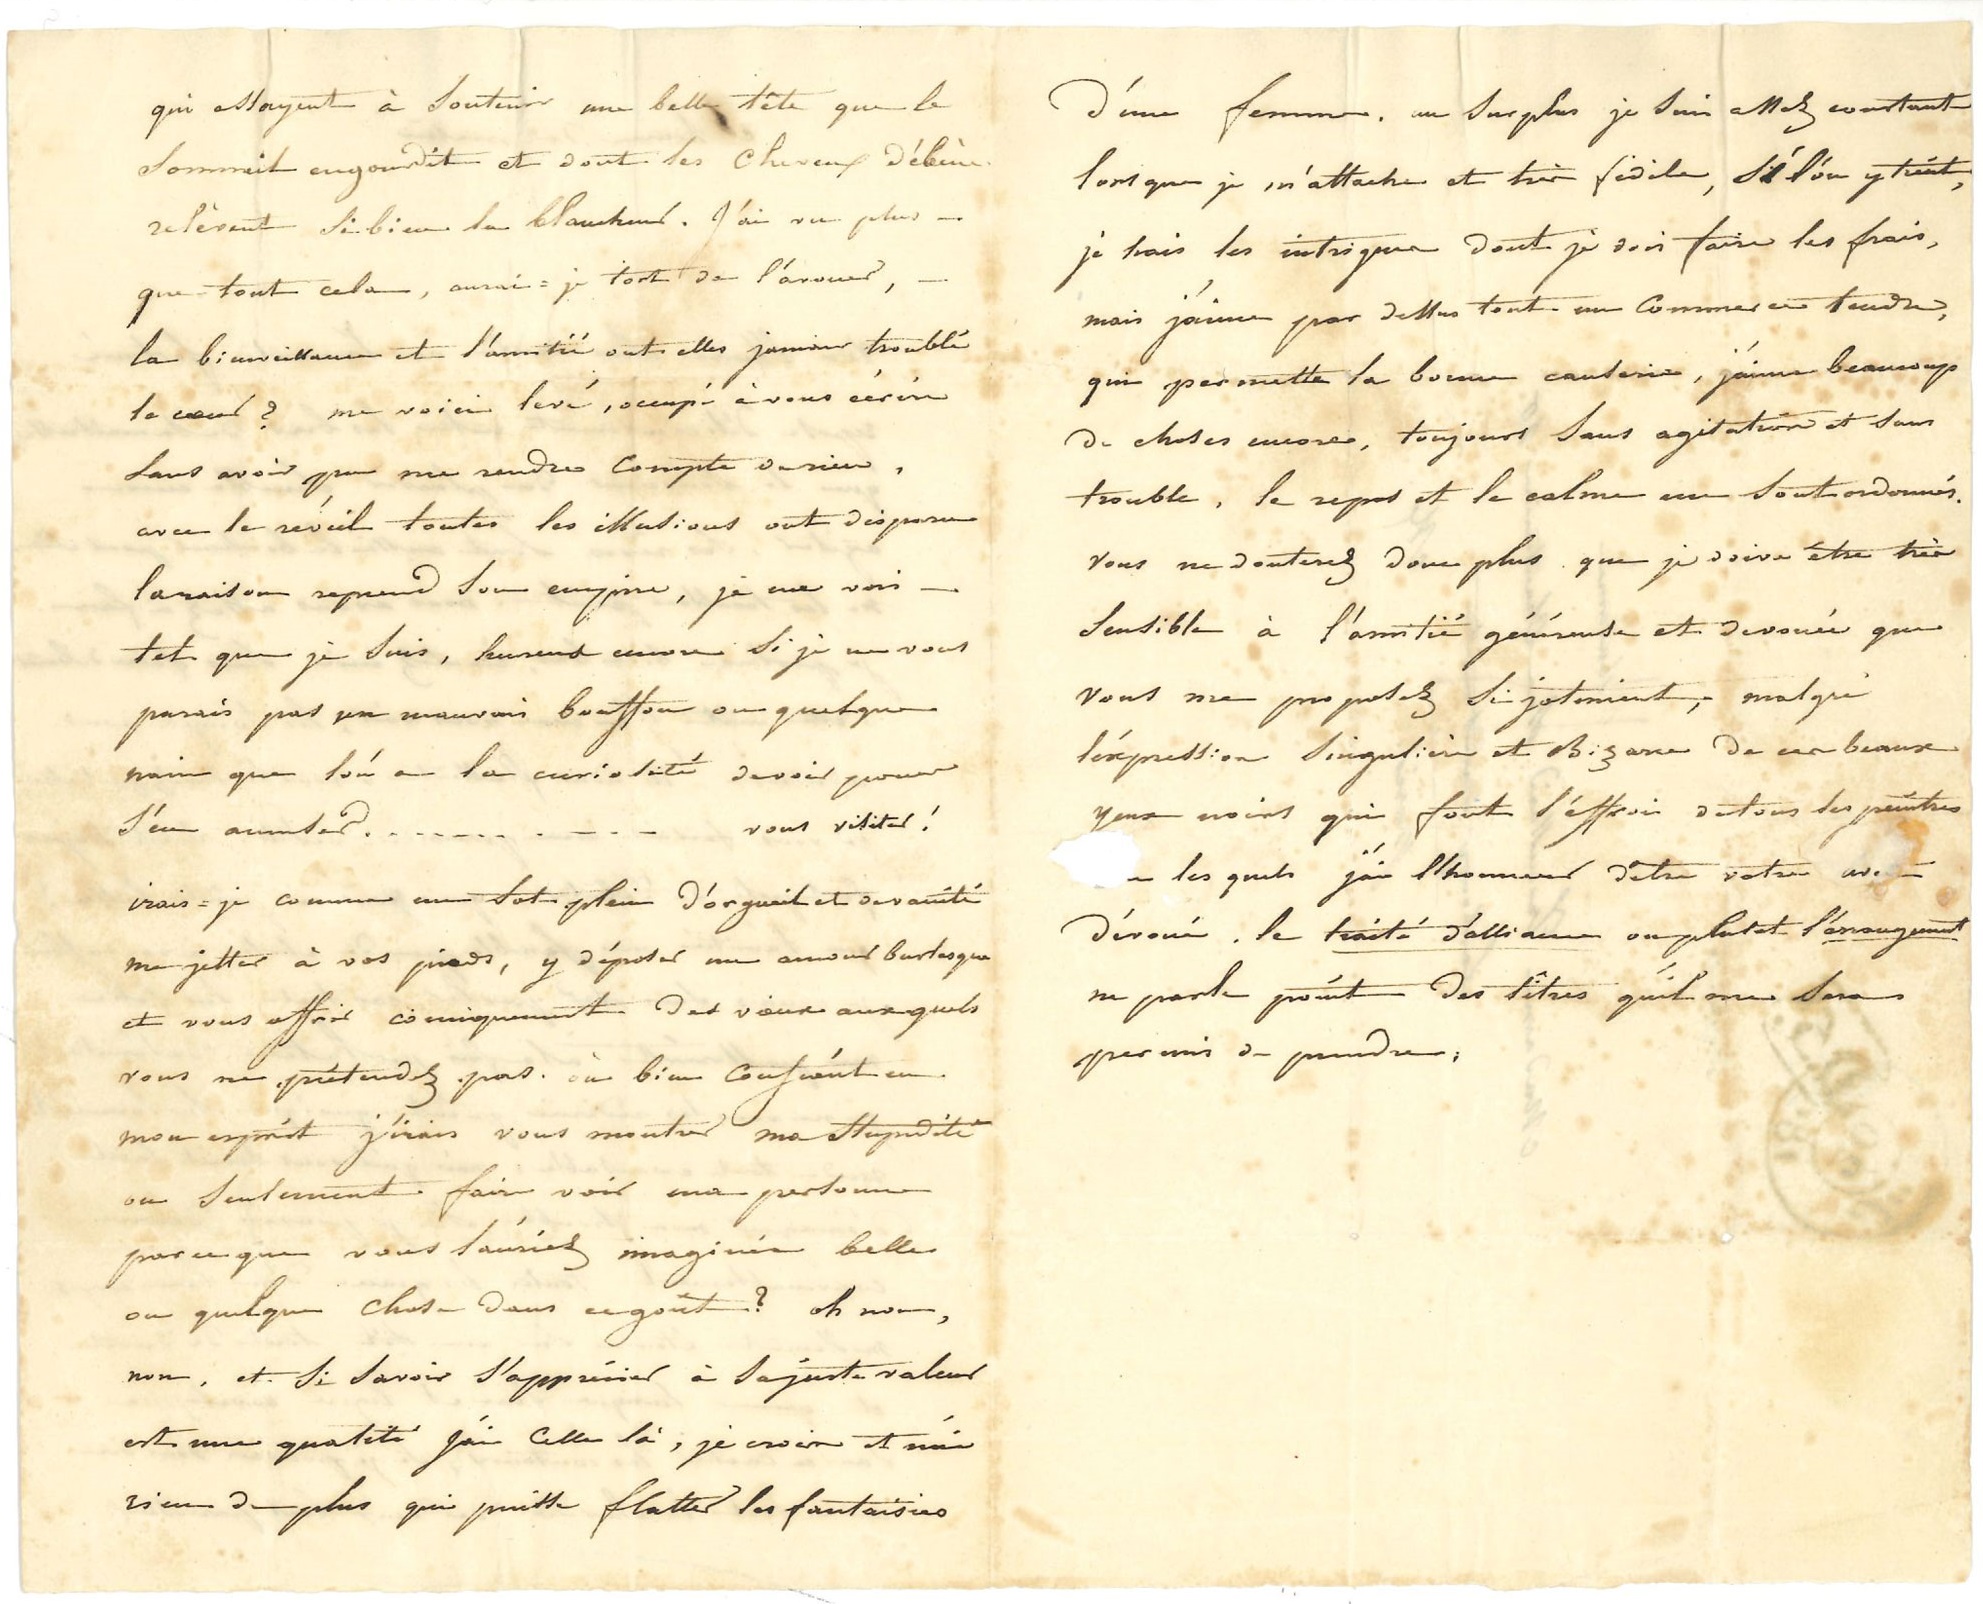 qui essayent à soutenir une belle tête que le
sommeil engourdit et dont les cheveux d'ébène
relèvent si bien la blancheur. J'ai vu plus —
que tout cela, aurai=je tort de l'avouer, —
la bienveillance et l'amitié ont elles jamais troublé
le cœur? me voici levé, occupé à vous écrire
sans avoir pu me rendre compte de rien,
avec le réveil toutes les illusions ont disparu
la raison reprend son empire, je me vois —
tel que je suis, heureux encore si je ne vous
parais pas un mauvais bouffon ou quelque
nain que l'on a la curiosité de voir pour
s'en amuser. . . . . . . . . — . — — vous visiter!
irais=je comme un sot plein d'orgueil et de vanité
me jetter à vos pieds, y déposer un amour burlesque
et vous offrir comiquement des vœux auxquels
vous ne prétendez pas. ou bien confiant en
mon esprit j'irais vous montrer ma stupidité
ou seulement faire voir ma personne
parceque vous l'auriez imaginée belle
ou quelque chose dans ce goût? oh non,
non, et si savoir s'apprécier à sa juste valeur
est une qualité j'ai celle là, je crois et n'ai
rien de plus qui puisse flatter les fantaisies
d'une femme. au surplus je suis assez constant
lorsque je m'attache et très fidèle, si l'on y tient,
je hais les intrigues dont je dois faire les frais,
mais j'aime par dessus tout un commerce tendre,
qui permette la bonne causerie, j'aime beaucoup
de choses encore, toujours sans agitation et sans
trouble, le repos et le calme me sont ordonnés.
vous ne douterez donc plus que je doive être très
sensible à l'amitié généreuse et dévouée que
vous me proposez si joliment, malgré
l'expression singulière et bizarre de ces beaux
yeux noirs qui font l'effroi de tous les peintres
les quels j'ai l'honneur d'être votre
dévoué. le traité d'alliance ou plutot l'arrangement
ne parle point des titres qu'il me sera
permis de prendre.